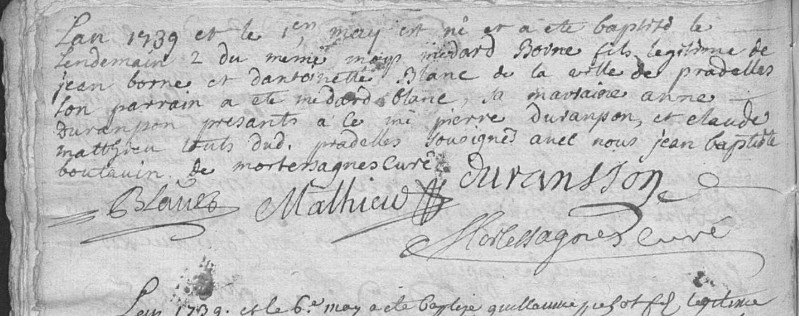 Lan 1739 et le 1en may est né et a eté baptisé le
Lendemain 2 du meme moys médard Borne fils legitime de
jean borne et dantoinette Blanc de la ville de pradelles
son parrain a eté médard blanc, sa marraine anne
Duranson présants a ce mr pierre duranson, et claude
matthieu touts dud. pradelles sousignés avec nous jean baptiste
de mortessagnes Curé
Blanc Mathieu duransson
Mortessagnes Curé
Lan 1739. et le 6e may a eté baptisé guillaume fil legitime